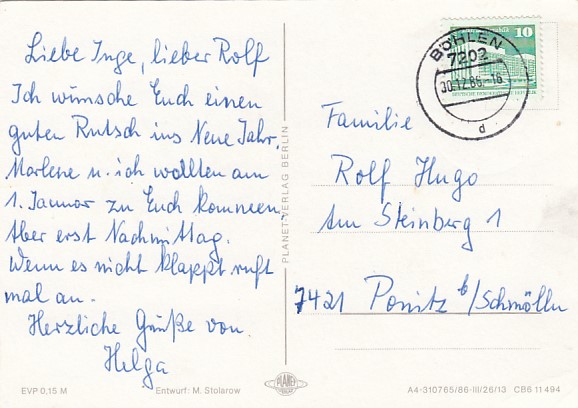 Liebe Inge, lieber Rolf
Ich wünsche Euch einen
guten Rutsch ins Neue Jahr.
Marlene u. ich wollten am
1. Januar zu Euch kommen.
Aber erst Nachmittag.
Wenn es nicht klappt ruft
mal an.
Herzliche Grüße von
Helga
EVP 0,15 M
Entwurf: M. Stolarow
PLANET-VERLAG BERLIN
PLANET
VERLAG
10
BÖHLEN
7202
30.12.86.-16
d
Familie
Rolf Hugo
Am Steinberg 1
7421 Ponitz b/Schmölln
A4-310765/86-III/26/13 CB6 11 494